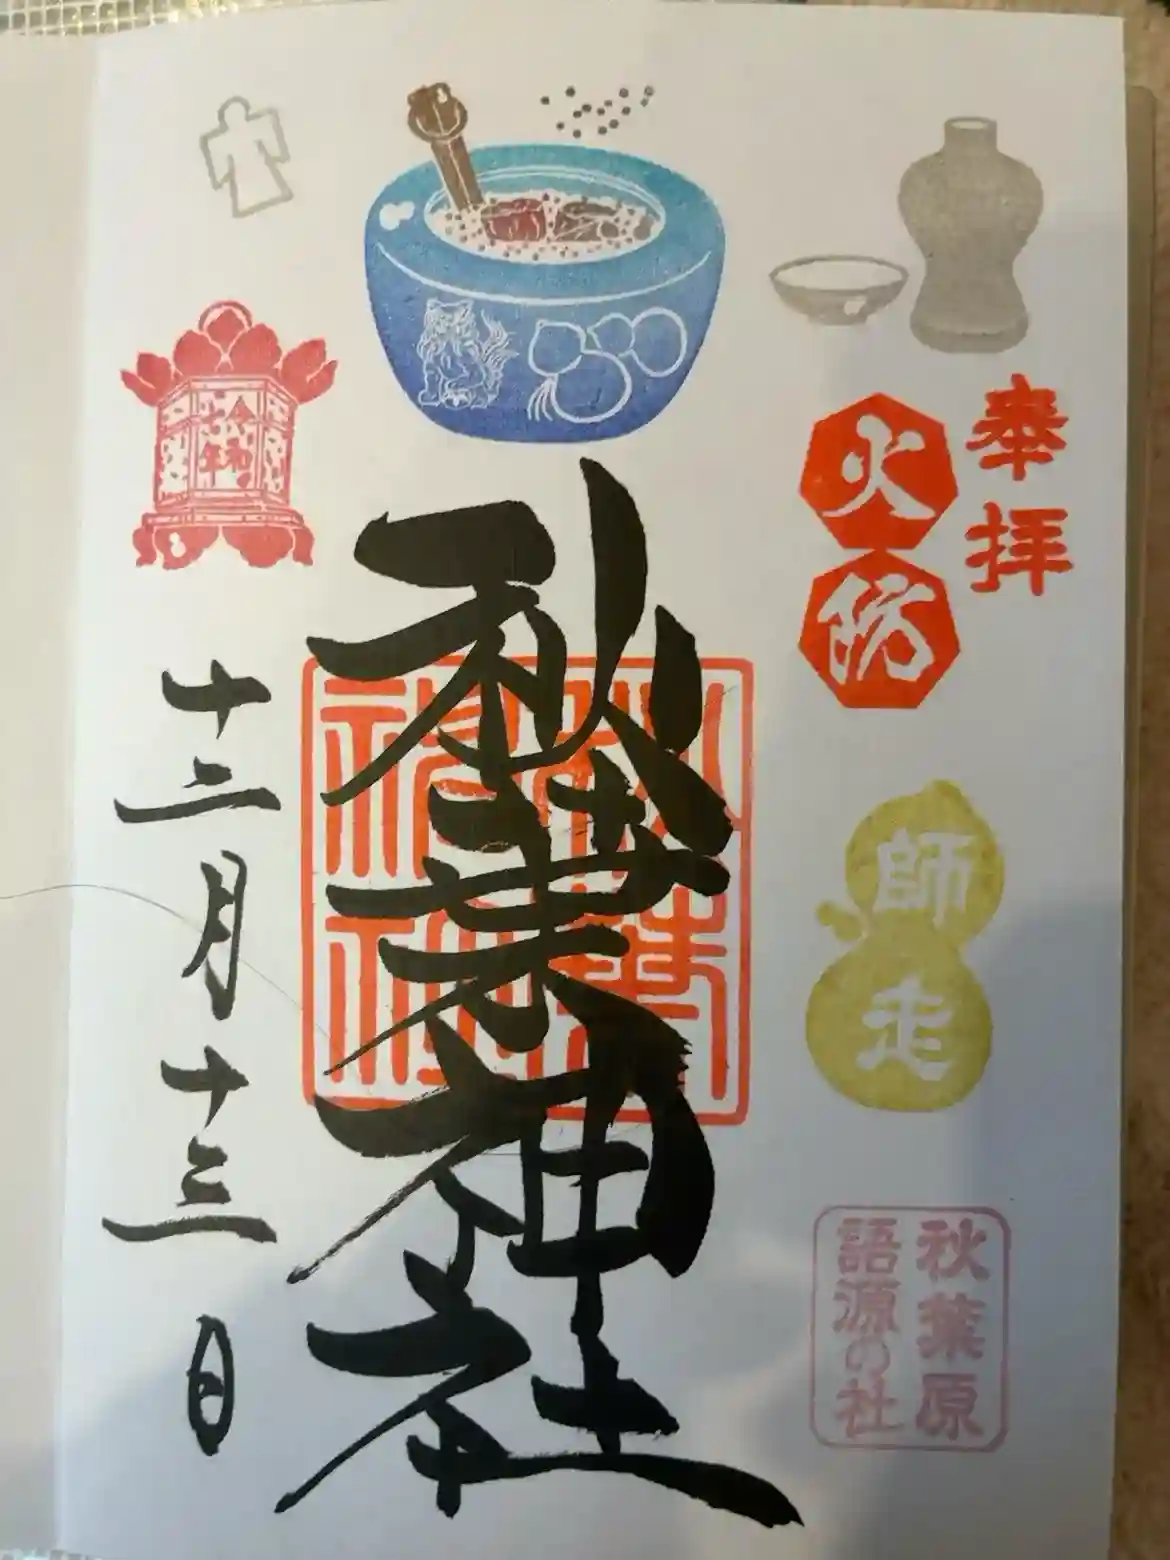 奉拝
火防
師走
秋葉原
語源の社
秋葉神社
秋葉
神社
令和
年
十二月十三日